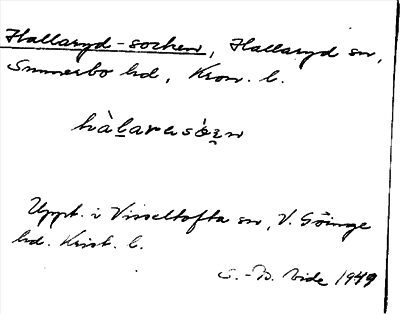 Hallaryd-socken, Hallaryd sn,
Sunnerbo hd, Kron. l.
hàlarasózn
Uppt. i Visseltofta sn, V. Göinge
hd. Krist. l.
S.-B. Vide 1949